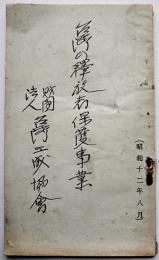 臺灣の釋放者保護事業
財團法人 臺灣三成協會
（昭和十二年八月）